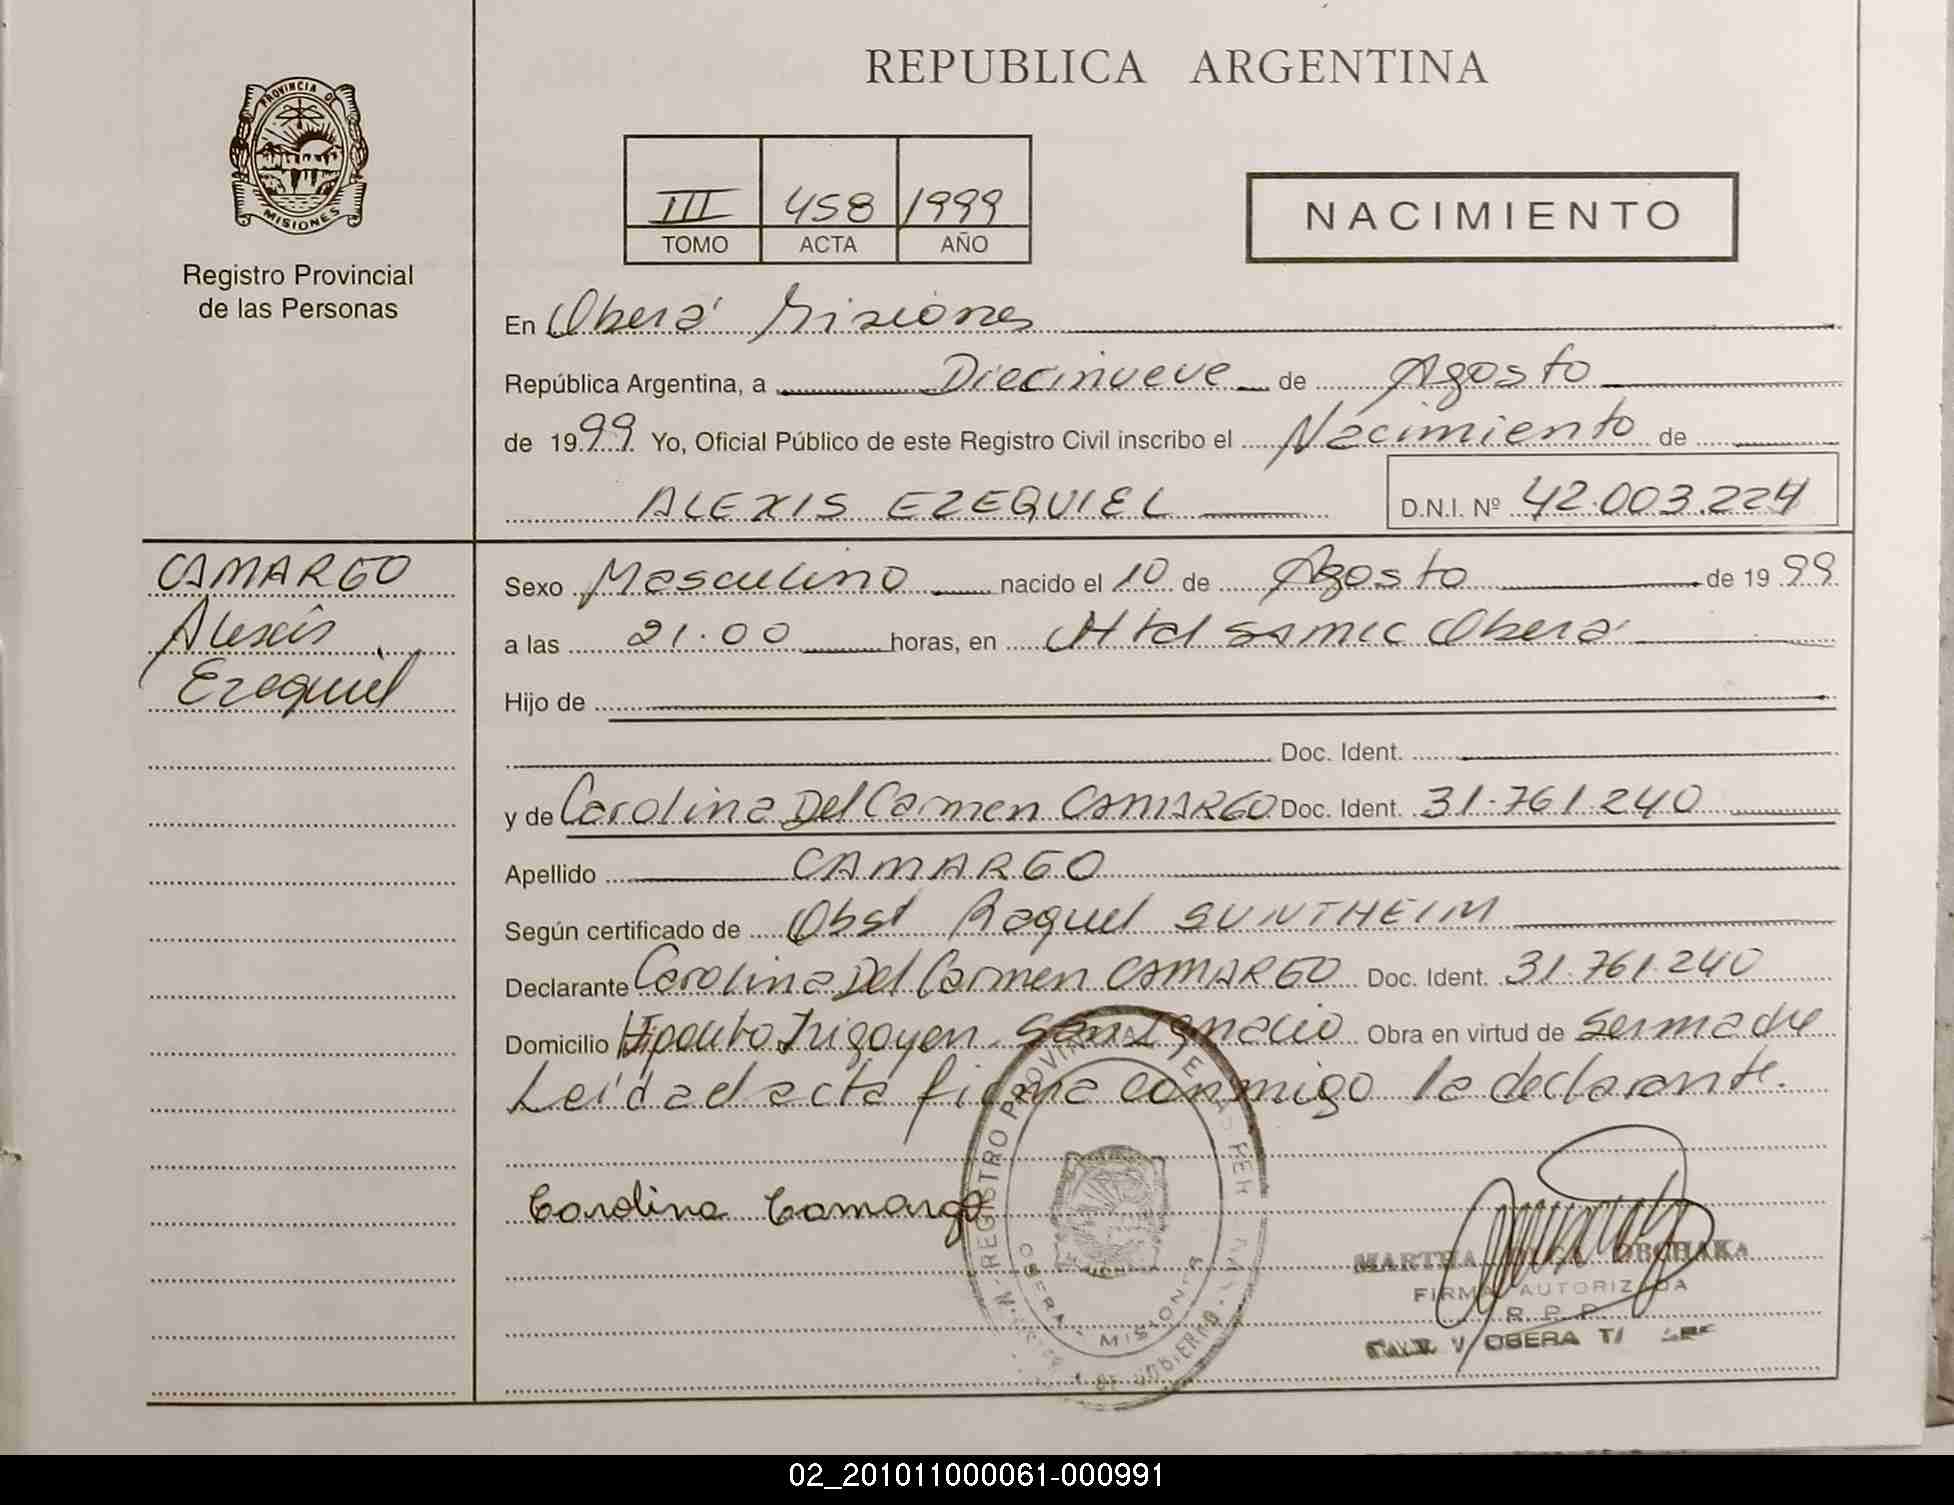 REPUBLICA ARGENTINA
PROVINCIA DE
MISIONES
Registro Provincial
de las Personas
III 458 1999
TOMO ACTA AÑO
NACIMIENTO
En Oberá Misiones
República Argentina, a Diecinueve de Agosto
de 1999 Yo, Oficial Público de este Registro Civil inscribo el Nacimiento de
ALEXIS EZEQUIEL D.N.I. Nº 42.003.224
CAMARGO
Alexis
Ezequiel
Sexo Masculino nacido el 10 de Agosto de 1999
a las 21.00 horas, en Htal SAMIC Oberá
Hijo de
Doc. Ident.
y de Carolina Del Carmen CAMARGO Doc. Ident. 31.761.240
Apellido CAMARGO
Según certificado de Obst Raquel SUNTHEIM
Declarante Carolina Del Carmen CAMARGO Doc. Ident. 31.761.240
Domicilio Hipolito Irigoyen San Ignacio Obra en virtud de ser madre
Leída el acta firma conmigo la declarante.
Carolina Camargo
REGISTRO PROVINCIAL DE LAS PER
OBERA - MISIONES
DE GOBIERNO
MARTHA OLGA
FIRMA AUTORIZADA
R. P. P.
OBERA
02_201011000061-000991